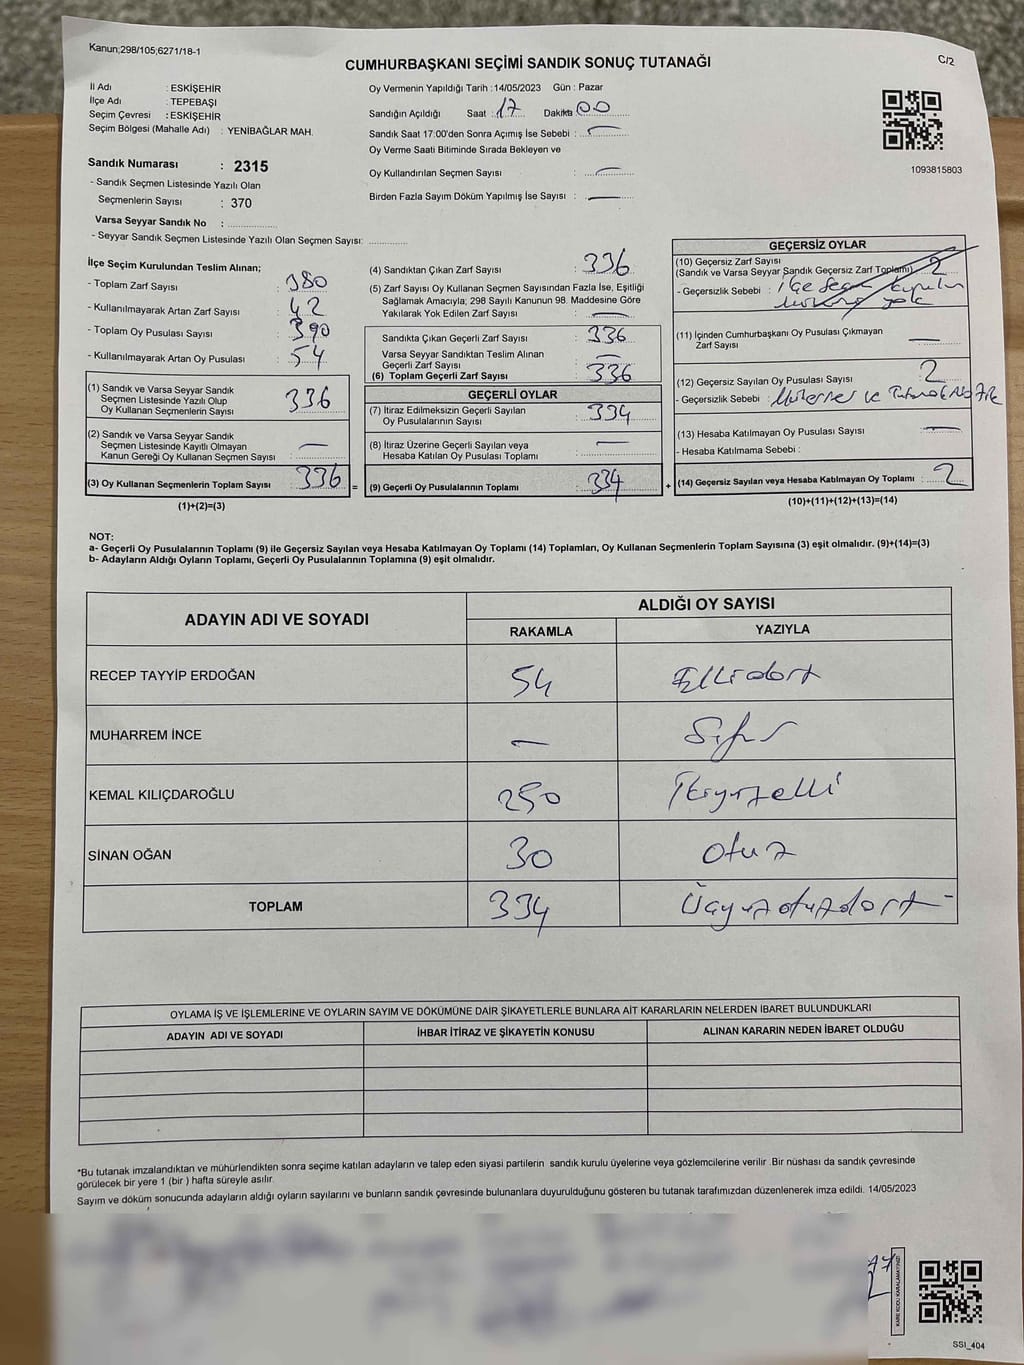 Kanun;298/105;6271/18-1
CUMHURBAŞKANI SEÇİMİ SANDIK SONUÇ TUTANAĞI
C/2
İl Adı : ESKİŞEHİR
İlçe Adı : TEPEBAŞI
Seçim Çevresi : ESKİŞEHİR
Seçim Bölgesi (Mahalle Adı) : YENİBAĞLAR MAH.
Oy Vermenin Yapıldığı Tarih :14/05/2023 Gün : Pazar
Sandığın Açıldığı Saat : 17 Dakika 00
Sandık Saat 17:00'den Sonra Açımış İse Sebebi : —
Oy Verme Saati Bitiminde Sırada Bekleyen ve
Oy Kullandırılan Seçmen Sayısı : —
Birden Fazla Sayım Döküm Yapılmış İse Sayısı : —
1093815803
Sandık Numarası : 2315
- Sandık Seçmen Listesinde Yazılı Olan
Seçmenlerin Sayısı : 370
Varsa Seyyar Sandık No : ..................
- Seyyar Sandık Seçmen Listesinde Yazılı Olan Seçmen Sayısı: ..............
İlçe Seçim Kurulundan Teslim Alınan;
- Toplam Zarf Sayısı : 380
- Kullanılmayarak Artan Zarf Sayısı : 42
- Toplam Oy Pusulası Sayısı : 390
- Kullanılmayarak Artan Oy Pusulası : 54
(1) Sandık ve Varsa Seyyar Sandık
Seçmen Listesinde Yazılı Olup
Oy Kullanan Seçmenlerin Sayısı : 336
(2) Sandık ve Varsa Seyyar Sandık
Seçmen Listesinde Kayıtlı Olmayan
Kanun Gereği Oy Kullanan Seçmen Sayısı : —
(3) Oy Kullanan Seçmenlerin Toplam Sayısı : 336
(1)+(2)=(3)
=
(4) Sandıktan Çıkan Zarf Sayısı : 336
(5) Zarf Sayısı Oy Kullanan Seçmen Sayısından Fazla İse, Eşitliği
Sağlamak Amacıyla; 298 Sayılı Kanunun 98. Maddesine Göre
Yakılarak Yok Edilen Zarf Sayısı : —
Sandıkta Çıkan Geçerli Zarf Sayısı : 336
Varsa Seyyar Sandıktan Teslim Alınan
Geçerli Zarf Sayısı : —
(6) Toplam Geçerli Zarf Sayısı : 336
GEÇERLİ OYLAR
(7) İtiraz Edilmeksizin Geçerli Sayılan
Oy Pusulalarının Sayısı : 334
(8) İtiraz Üzerine Geçerli Sayılan veya
Hesaba Katılan Oy Pusulası Toplamı : —
(9) Geçerli Oy Pusulalarının Toplamı : 334
+
GEÇERSİZ OYLAR
(10) Geçersiz Zarf Sayısı
(Sandık ve Varsa Seyyar Sandık Geçersiz Zarf Toplamı) : 2
- Geçersizlik Sebebi : ilçe seçim kurulu
mührü yok
(11) İçinden Cumhurbaşkanı Oy Pusulası Çıkmayan
Zarf Sayısı : —
(12) Geçersiz Sayılan Oy Pusulası Sayısı : 2
- Geçersizlik Sebebi : ve
(13) Hesaba Katılmayan Oy Pusulası Sayısı : —
- Hesaba Katılmama Sebebi :
(14) Geçersiz Sayılan veya Hesaba Katılmayan Oy Toplamı : 2
(10)+(11)+(12)+(13)=(14)
NOT:
a- Geçerli Oy Pusulalarının Toplamı (9) ile Geçersiz Sayılan veya Hesaba Katılmayan Oy Toplamı (14) Toplamları, Oy Kullanan Seçmenlerin Toplam Sayısına (3) eşit olmalıdır. (9)+(14)=(3)
b- Adayların Aldığı Oyların Toplamı, Geçerli Oy Pusulalarının Toplamına (9) eşit olmalıdır.
ADAYIN ADI VE SOYADI
ALDIĞI OY SAYISI
RAKAMLA YAZIYLA
RECEP TAYYİP ERDOĞAN 54 Ellidört
MUHARREM İNCE — Sıfır
KEMAL KILIÇDAROĞLU 250 İkiyüzelli
SİNAN OĞAN 30 otuz
TOPLAM 334 Üçyüzotuzdört
OYLAMA İŞ VE İŞLEMLERİNE VE OYLARIN SAYIM VE DÖKÜMÜNE DAİR ŞİKAYETLERLE BUNLARA AİT KARARLARIN NELERDEN İBARET BULUNDUKLARI
ADAYIN ADI VE SOYADI İHBAR İTİRAZ VE ŞİKAYETİN KONUSU ALINAN KARARIN NEDEN İBARET OLDUĞU
*Bu tutanak imzalandıktan ve mühürlendikten sonra seçime katılan adayların ve talep eden siyasi partilerin sandık kurulu üyelerine veya gözlemcilerine verilir .Bir nüshası da sandık çevresinde
görülecek bir yere 1 (bir ) hafta süreyle asılır.
Sayım ve döküm sonucunda adayların aldığı oyların sayılarını ve bunların sandık çevresinde bulunanlara duyurulduğunu gösteren bu tutanak tarafımızdan düzenlenerek imza edildi. 14/05/2023
KARE KODU KARALAMAYINIZ!
SSI_404